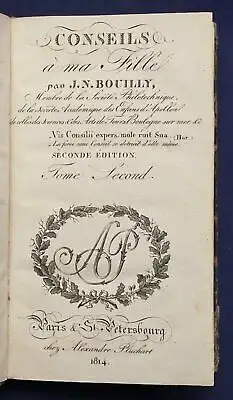 CONSEILS
à ma Fille,
par J. N. BOUILLY,
Membre de la Société Philotechnique,
de la Société Académique des Enfans d'Apollon,
de celles des Sciences & des Arts de Tours, Boulogne sur mer, &c
Vis Consilii expers, mole ruit Sua. (Hor.)
La force sans Conseil se détruit d'elle même.
SECONDE EDITION,
Tome Second.
AP
Paris & St. Petersbourg
chez Alexandre Pluchart
1814.